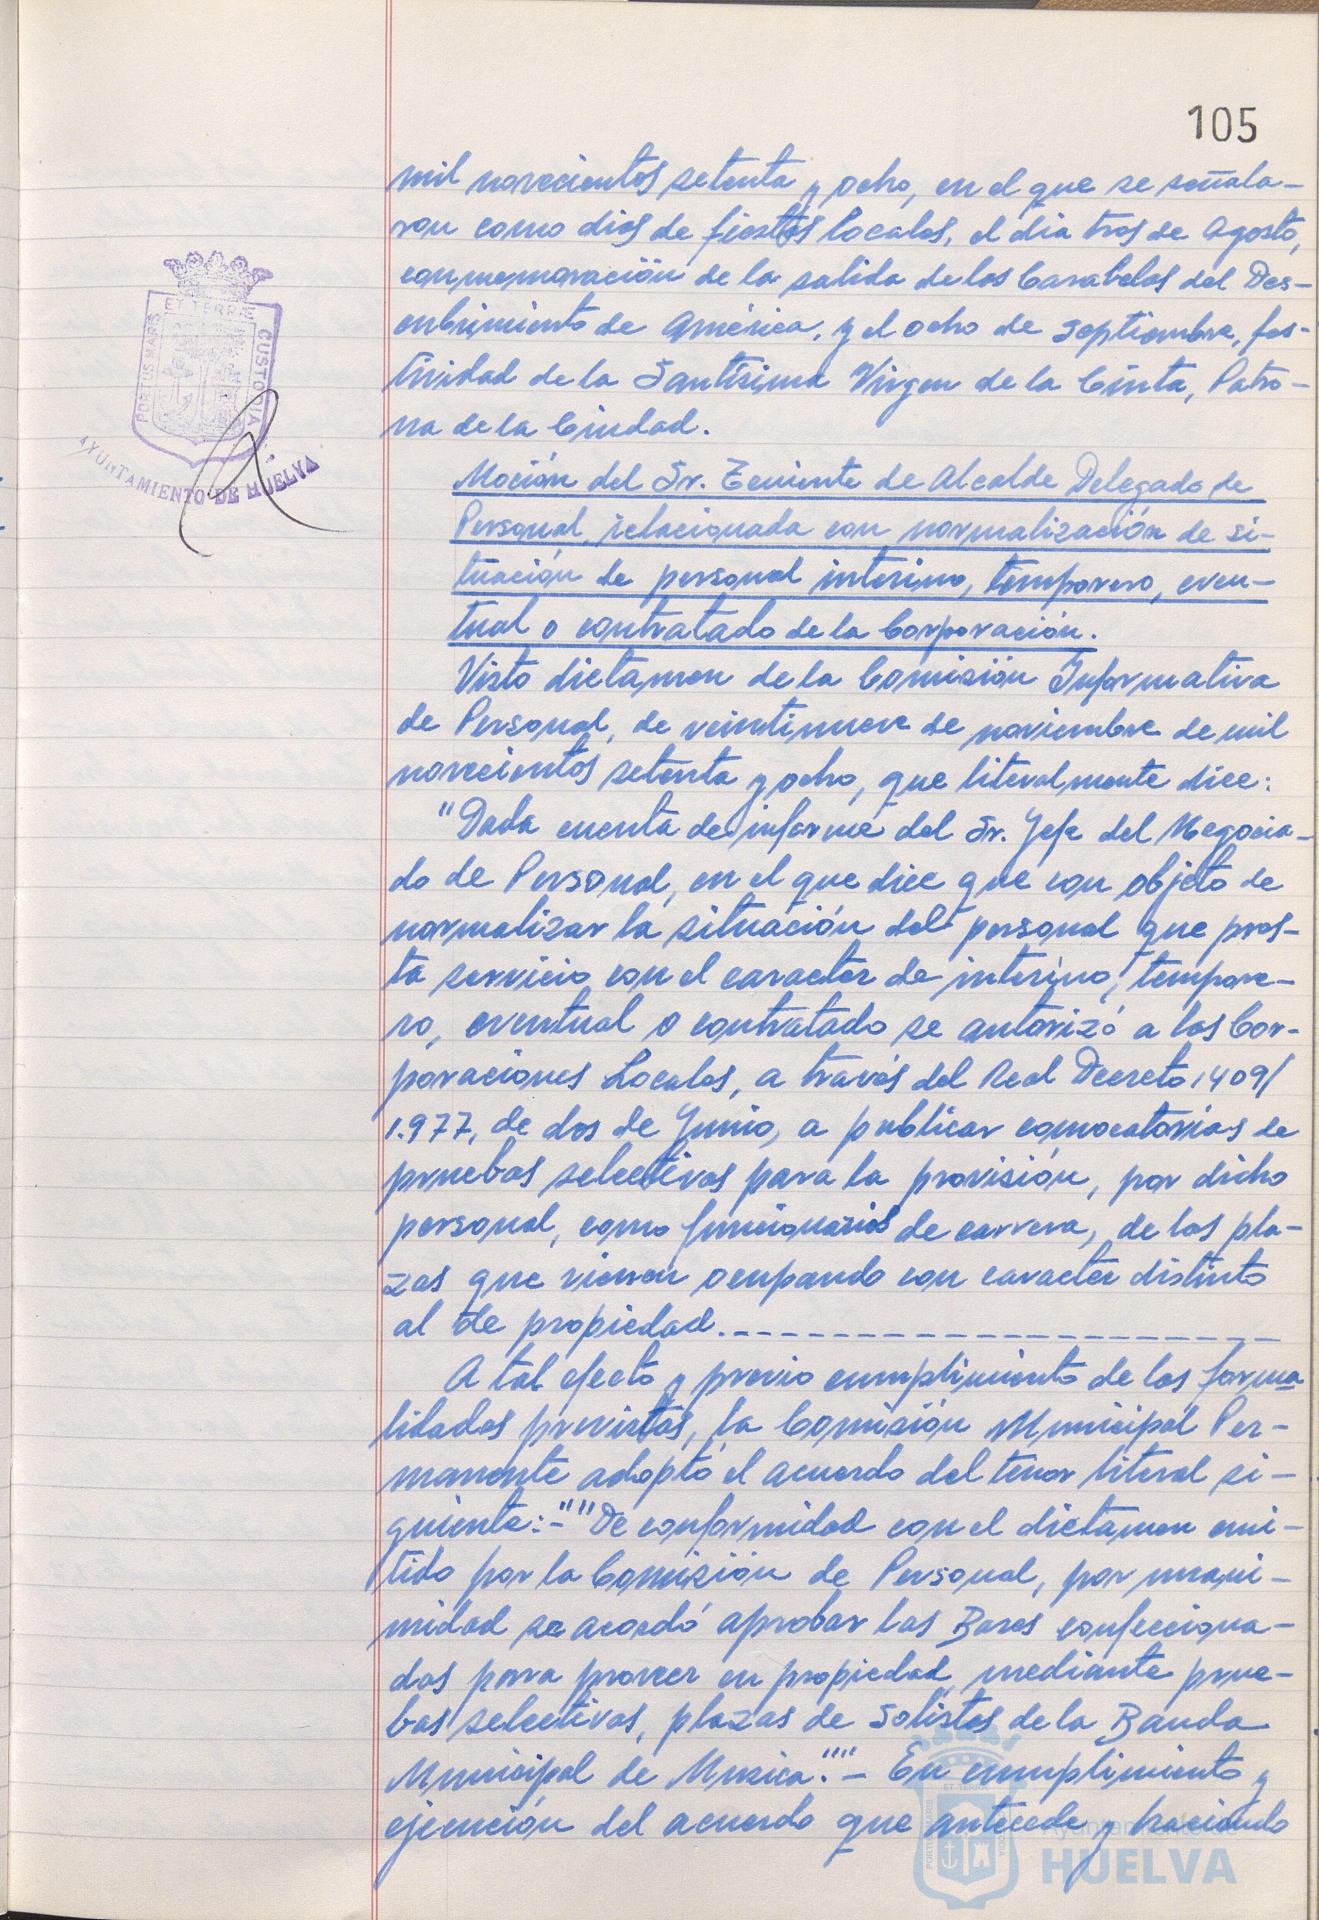 105
mil novecientos setenta y ocho, en el que se señala-
ron como dias de fiestas locales, el dia tres de Agosto,
conmemoración de la salida de las Carabelas del Des-
cubrimiento de América, y el ocho de septiembre, fes-
tividad de la Santísima Virgen de la Cinta, Patro-
na de la Ciudad.
PORTUS MARIS ET TERRÆ CUSTODIA
AYUNTAMIENTO DE HUELVA
Moción del Sr. Teniente de Alcalde Delegado de
Personal, relacionada con normalización de si-
tuación de personal interino, temporero, even-
tual o contratado de la Corporación.
Visto dictamen de la Comisión Informativa
de Personal, de veintinueve de noviembre de mil
novecientos setenta y ocho, que literalmente dice:
"Dada cuenta de informe del Sr. Jefe del Negocia-
do de Personal, en el que dice que con objeto de
normalizar la situación del personal que pres-
ta servicio con el caracter de interino, tempore-
ro, eventual o contratado se autorizó a las Cor-
poraciones Locales, a través del Real Decreto 1409/
1.977, de dos de Junio, a publicar convocatorias de
pruebas selectivas para la provisión, por dicho
personal, como funcionarios de carrera, de las pla-
zas que vienen ocupando con caracter distinto
al de propiedad.
A tal efecto y previo cumplimiento de las forma
lidades previstas, la Comisión Municipal Per-
manente adoptó el acuerdo del tenor literal si-
guiente:-""De conformidad con el dictamen emi-
tido por la Comisión de Personal, por unani-
midad se acordó aprobar las Bases confecciona-
das para proveer en propiedad, mediante prue-
bas selectivas, plazas de Solistas de la Banda
Municipal de Musica."""- En cumplimiento y
ejecución del acuerdo que antecede y haciendo
PORTUS MARIS ET TERRA CUSTODIA
Ayuntamiento de
HUELVA